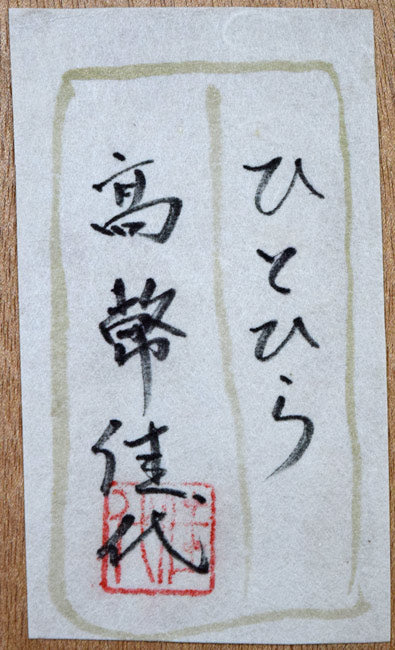 ひとひら
高幣佳代